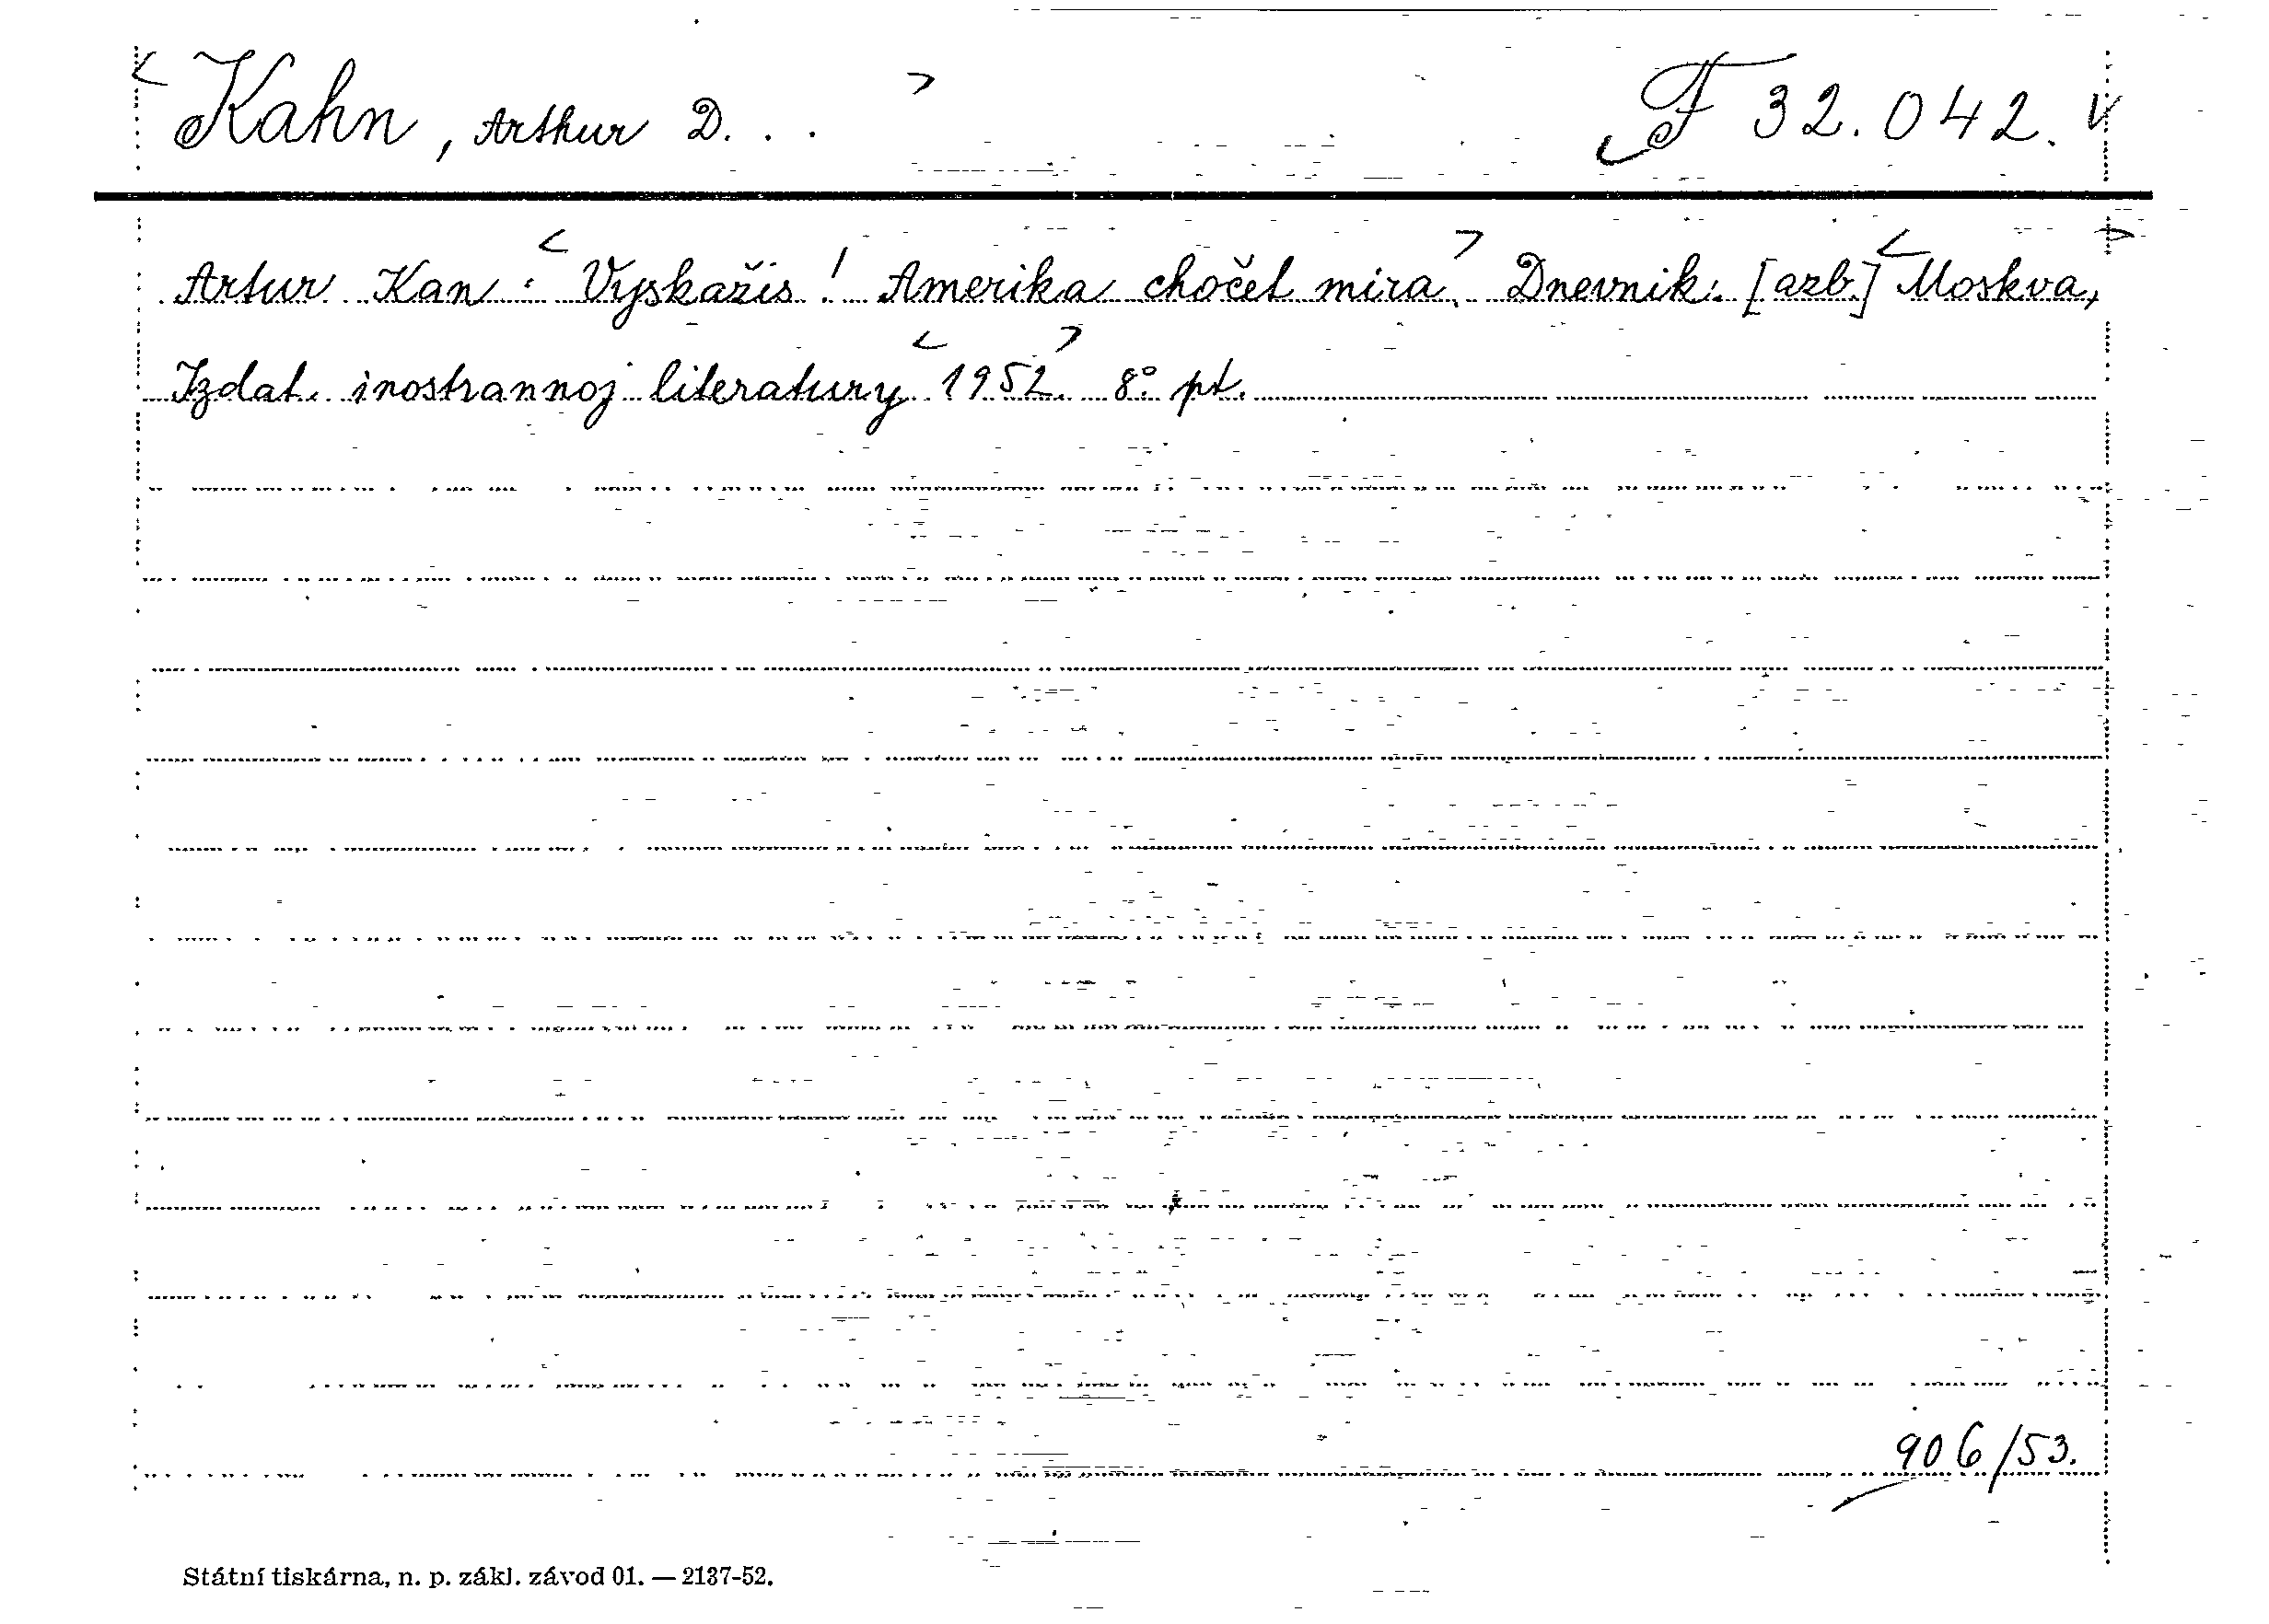 < Kahn, Arthur D. . . > F 32.042. V
Artur Kan: < Vyskažis! Amerika chočet mira. > Dnevnik. [azb.] < Moskva, >
Izdat. inostrannoj literatury < 1952. > 8° pt.
906/53.
Státní tiskárna, n. p. zákl. závod 01. — 2137-52.